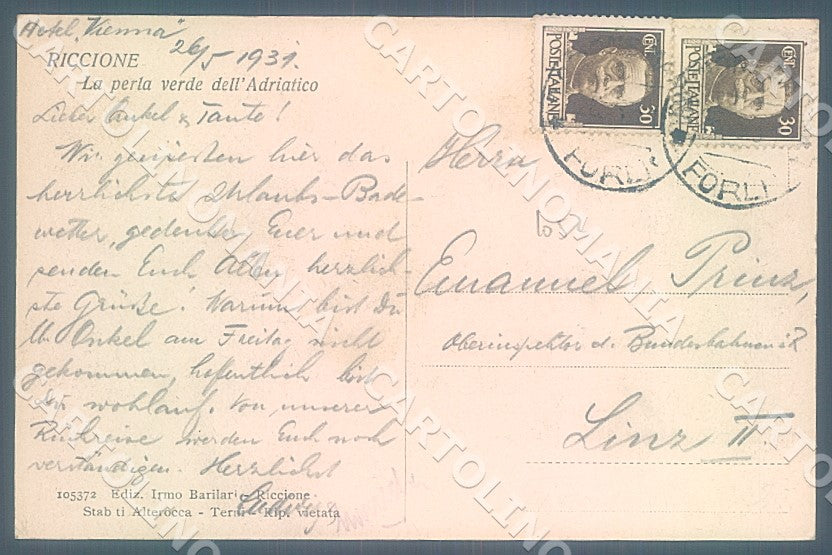 Hotel „Vienna“
26/5 1931.
RICCIONE
La perla verde dell'Adriatico
Lieber Onkel & Tante!
Wir genießen hier das
herrlichste Urlaubs-Bade-
wetter, gedenken Euer und
senden Euch Allen herzlich-
ste Grüße. Warum bist Du
lb. Onkel am Freitag nicht
gekommen, hoffentlich bist
Du wohlauf. Von unserer
Rückreise werden Euch noch
verständigen. Herzlichst
105372 Ediz. Irmo Barilari - Riccione
Stab ti Alterocca - Terni - Rip. vietata
CENT. 30
POSTE ITALIANE
CENT. 30
POSTE ITALIANE
FORLI
FORLI
Herrn
Emanuel Prinz,
Oberinspektor d. Bundesbahnen i.R
Linz II
CARTOLINOMANIA